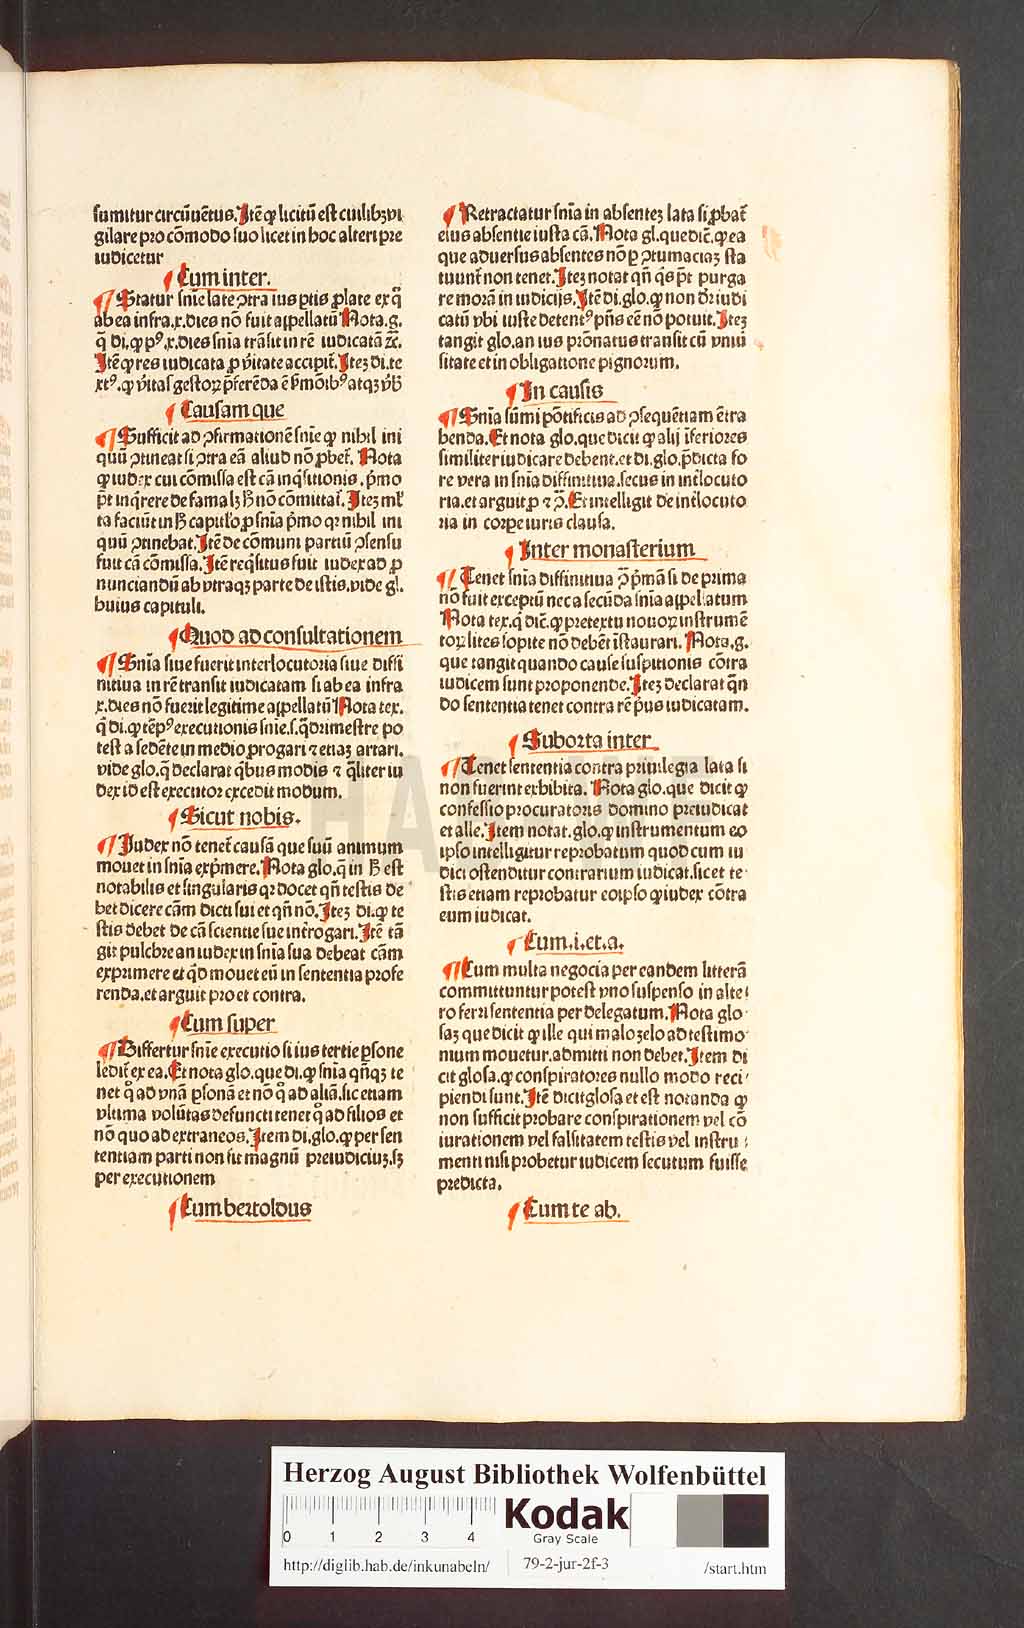 sumitur circūuētus. Itē ꝙ licitū est cuilibꝫ vi
gilare pro cōmodo suo licet in hoc alteri pre
iudicetur
¶ Cum inter.
¶ Statur snīe late ꝯtra ius ptis ꝓlate ex q̄
ab ea infra .x. dies nō fuit appellatū Nota .g.
q̄ di. ꝙ pꝰ .x. dies snīa trāsit in rē iudicatā ⁊c̄.
Itē ꝙ res iudicata ꝓ v̄itate accipit̄. Iteꝫ di. te
xtꝰ. ꝙ v̄itas gestoꝝ p̄ferēda ē
¶ Causam que
¶ Sufficit ad ꝯfirmationē snīe ꝙ nihil ini
quū ꝯtineat si ꝯtra eā aliud nō ꝓbet̄. Nota
ꝙ iudex cui cōmissa est cā inq̄sitionis, p̄mo
p̄t inq̄rere de fama lꝫ hͦ nō cōmittat̄. Iteꝫ
ta faciūt in hͦ capitu̇lo ꝓ snīa p̄mo qꝛ nihil ini
quū ꝯtinebat. Itē de cōmuni partiū ꝯsensu
fuit cā cōmissa. Itē req̄situs fuit iudex ad ꝓ
nunciandū ab vtraqꝫ parte de istis. vide gl.
huius capituli.
¶ Quod ad consultationem
¶ Snīa siue fuerit interlocutoria siue diffi
nitiua in rē transit iudicatam si ab ea infra
.x. dies nō fuerit legitime appellatū Nota tex.
q̄ di. ꝙ tēpꝰ executionis snīe .s. q̄drimestre po
test a sedēte in medio ꝓrogari ⁊ etiaꝫ artari.
vide glo. q̄ declarat q̄bus modis ⁊ q̄liter iu
dex id est executor excedit modum.
¶ Sicut nobis.
¶ Iudex nō tenet̄ causā que suū animum
mouet in snīa exp̄mere. Nota glo. q̄ in hͦ est
notabilis et singularis qꝛ docet qn̄ testis de
bet dicere cām dicti sui et qn̄ nō. Iteꝫ di. ꝙ te
stis debet de cā scientie sue int̄rogari. Itē tā
git pulchre an iudex in snīa sua debeat cām
exprimere et q̄d mouet eū in sententia profe
renda. et arguit pro et contra.
¶ Cum super
¶ Differtur snīe executio si ius tertie ꝑsone
ledit̄ ex ea. Et nota glo. que di. ꝙ snīa qn̄qꝫ te
net q̄ ad vnā ꝑsonā et nō q̄ ad aliā. sic etiam
vltima volūtas defuncti tenet q̄ ad filios et
nō quo ad extraneos. Item di. glo. ꝙ per sen
tentiam parti non fit magnū preiudiciuꝫ. sꝫ
per executionem
¶ Cum bertoldus
¶ Retractatur snīa in absenteꝫ lata si ꝓbat̄
eius absentie iusta cā. Nota gl. que dic̄. ꝙ ea
que aduersus absentes nō ꝑ ꝯtumaciaꝫ sta
tuunt̄ non tenet. Iteꝫ notat qn̄ qs p̄t purga
re morā in iudicijs. Itē di. glo. ꝙ non dr̄ iudi
catū vbi iuste detentꝰ pn̄s eē nō potuit. Iteꝫ
tangit glo. an ius pr̄onatus transit cū vniū
sitate et in obligatione pignorum.
¶ In causis
¶ Snīa sūmi pōtificis ad ꝯsequētiam ē tra
henda. Et nota glo. que dicit ꝙ alij īferiores
similiter iudicare debent. et di. glo. p̄dicta fo
re vera in snīa diffinitiua. secus in int̄locuto
ria. et arguit ꝓ ⁊ ꝯ̄. Et intelligit de int̄locuto
ria in corpe iuris clausa.
¶ Inter monasterium
¶ Tenet snīa diffinitiua ꝯ̄ p̄mā si de prima
nō fuit exceptū nec a secūda snīa appellatum
Nota tex. q̄ dic̄. ꝙ pretextu nouoꝝ instrumē
toꝝ lites sopite nō debēt īstaurari. Nota .g.
que tangit quando cause suspitionis cōtra
iudicem sunt proponende. Iteꝫ declarat q̄n
do sententia tenet contra rē pͥus iudicatam.
¶ Suborta inter
¶ Tenet sententia contra priuilegia lata si
non fuerint exhibita. Nota glo. que dicit ꝙ
confessio procuratoris domino preiudicat
et alle. Item notat. glo. ꝙ instrumentum eo
ipso intelligitur reprobatum quod cum iu
dici ostenditur contrarium iudicat. sic et te
stis etiam reprobatur eo ipso ꝙ iudex cōtra
eum iudicat.
¶ Cum .i. et .a.
¶ Cum multa negocia per eandem litterā
committuntur potest vno suspenso in alte
ro ferri sententia per delegatum. Nota glo
saꝫ que dicit ꝙ ille qui malo zelo ad testimo
nium mouetur. admitti non debet. Item di
cit glosa. ꝙ conspiratores nullo modo reci
piendi sunt. Itē dicit glosa et est notanda ꝙ
non sufficit probare conspirationem vel cō
iurationem vel falsitatem testis vel instru
menti nisi probetur iudicem secutum fuisse
predicta.
¶ Cum te ab.
HAB · WF
Herzog August Bibliothek Wolfenbüttel
0 1 2 3 4
Kodak
Gray Scale
http://diglib.hab.de/inkunabeln/ 79-2-jur-2f-3 /start.htm